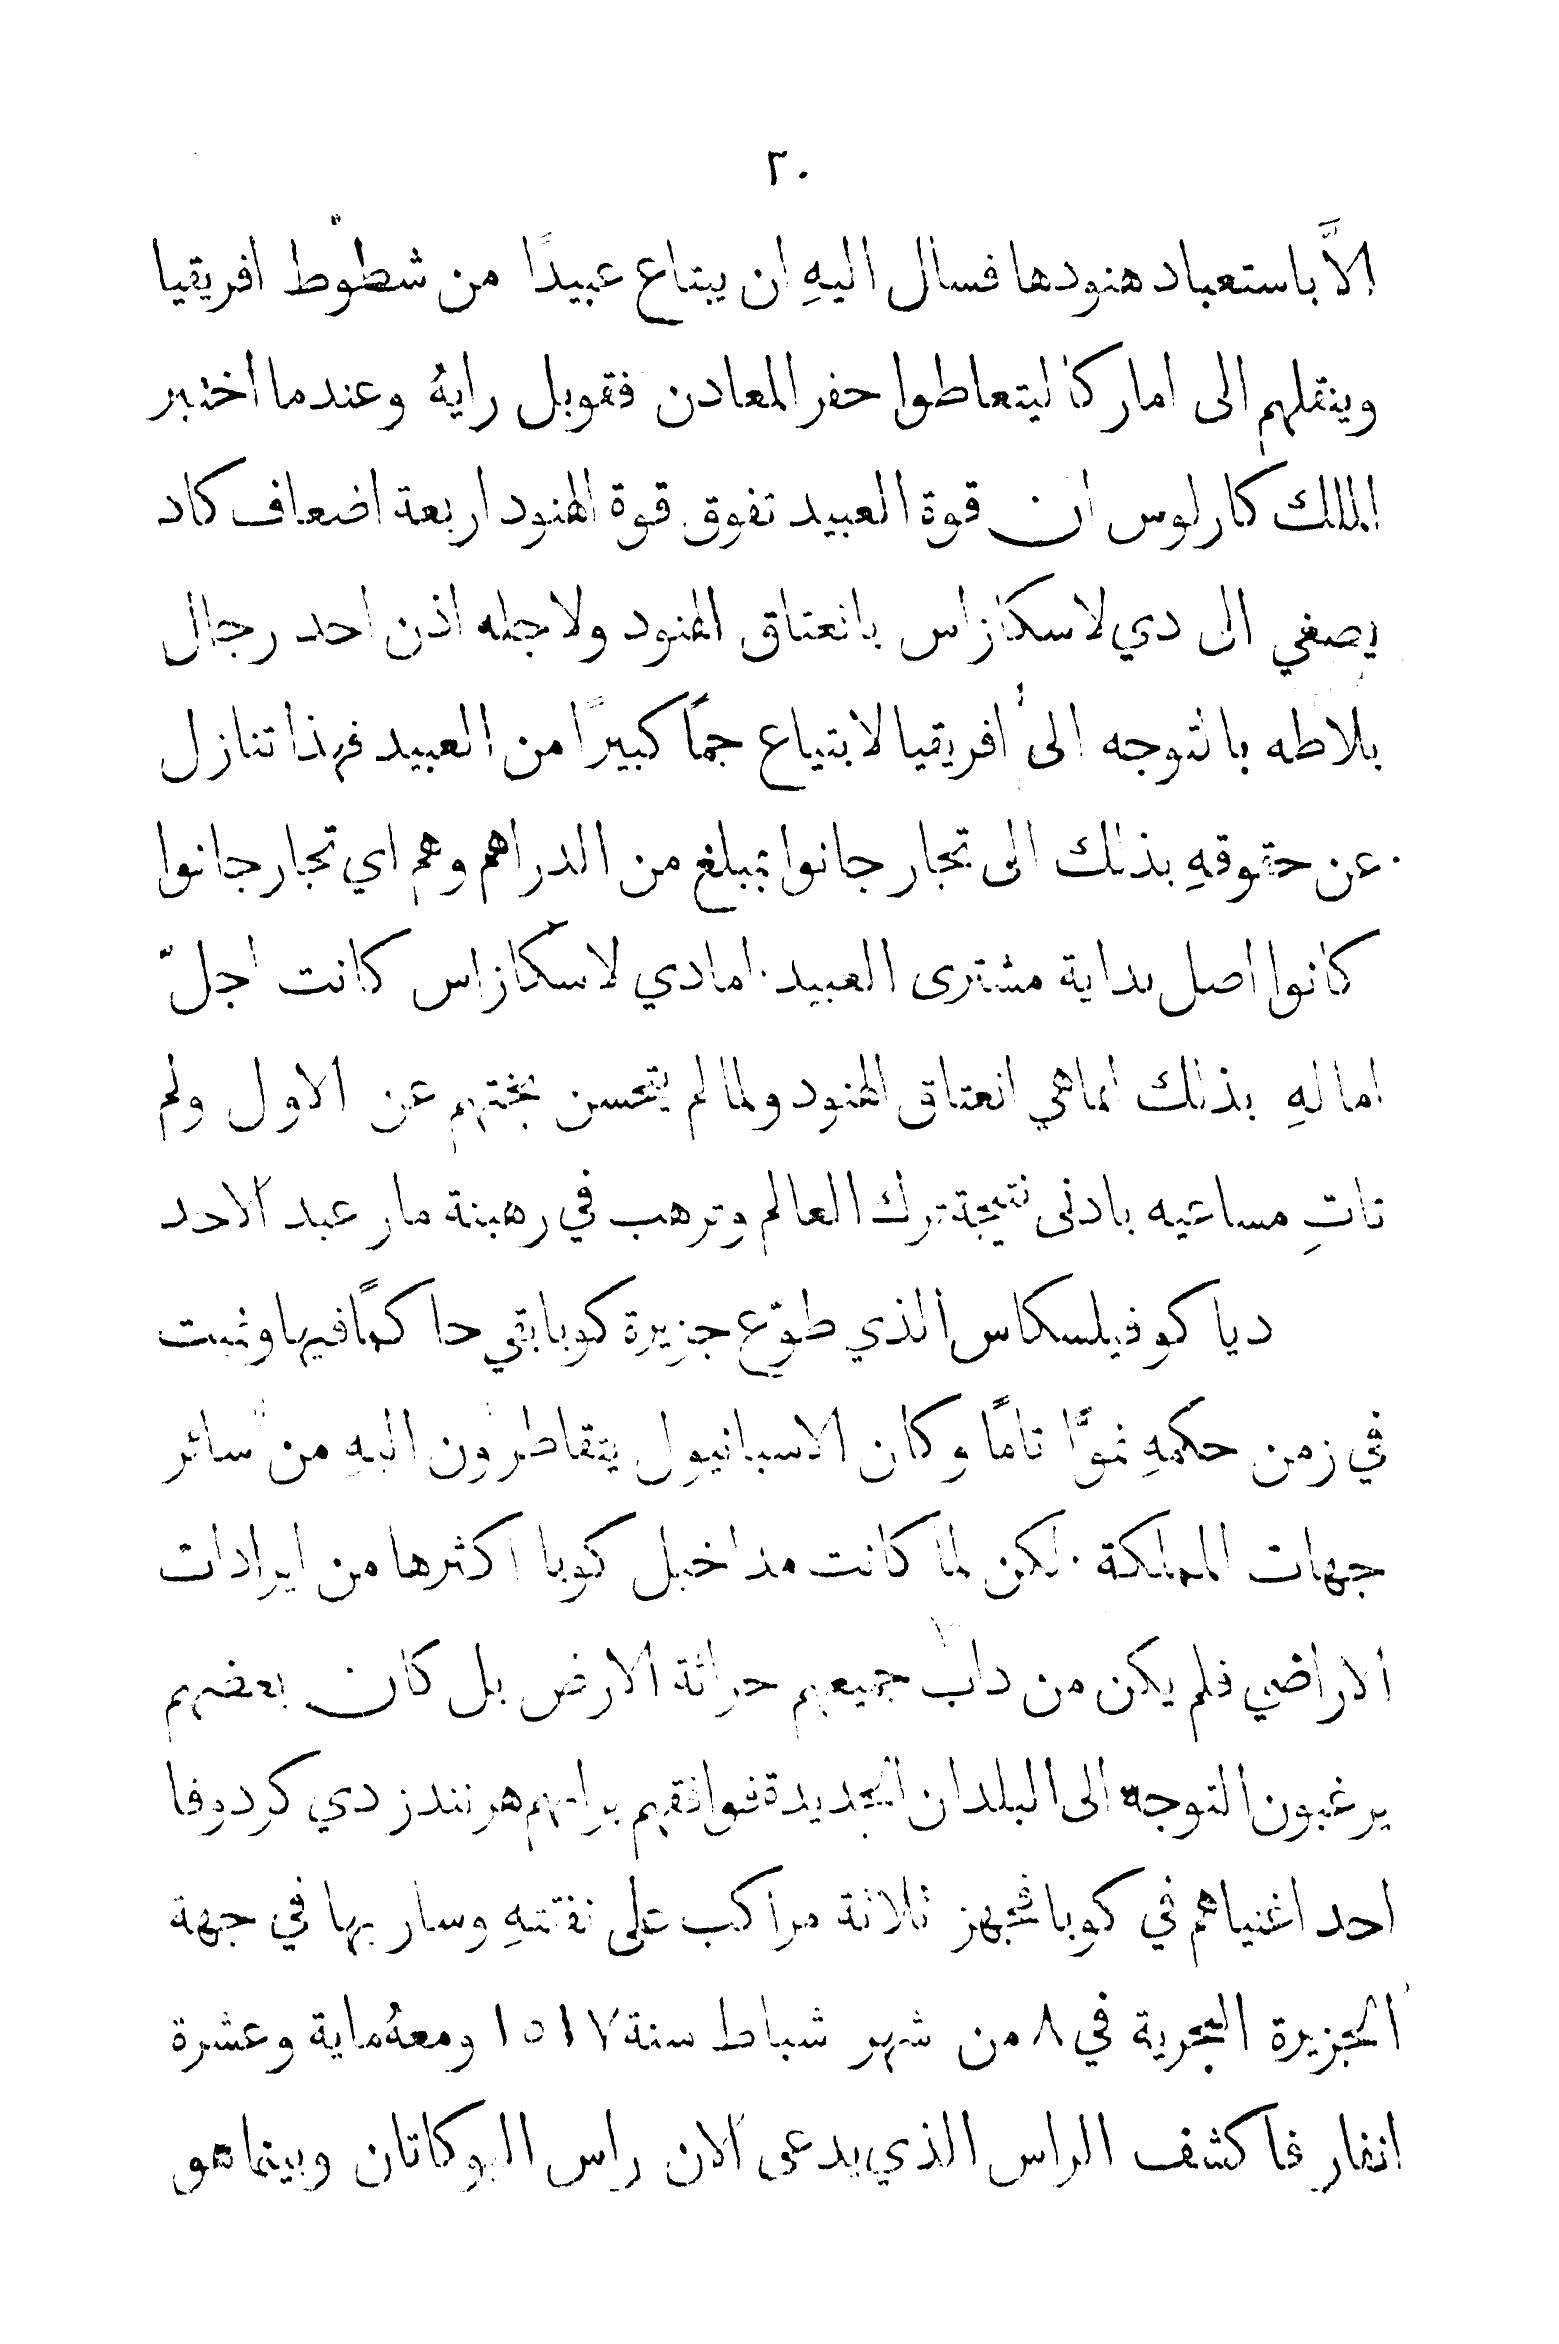 ٣٠
الاَّ باستعباد هنودها فسال اليهِ ان يبتاع عبيدًا من شطوط افريقيا
وينقلهم الى اماركا ليتعاطوا حفر المعادن فقوبل رايهُ وعندما اختبر
الملك كارلوس ان قوة العبيد تفوق قوة الهنود اربعة اضعاف كاد
يصغي الى دي لاسكازاس بانعتاق الهنود ولاجله اذن احد رجال
بلاطه بالتوجه الى افريقيا لابتياع جمًا كبيرًا من العبيد فهذا تنازل
عن حقوقهِ بذلك الى تجار جانوا بمبلغ من الدراهم وهم اي تجار جانوا
كانوا اصل بداية مشترى العبيد. اما دي لاسكازاس كانت اجلّ
امالهِ بذلك انما هي انعتاق الهنود ولما لم يتحسن بختهم عن الاول ولم
تاتِ مساعيه بادنى نتيجة ترك العالم وترهب في رهبنة مار عبد الاحد
دياكو فيلسكاس الذي طوّع جزيرة كوبا بقي حاكمًا فيها ونمت
في زمن حكمهِ نموًّا تامًا وكان الاسبانيول يتقاطرون اليهِ من سائر
جهات المملكة. لكن لما كانت مداخيل كوبا اكثرها من ايرادات
الاراضي فلم يكن من داب جميعهم حراثة الارض بل كان بعضهم
يرغبون التوجه الى البلدان الجديدة فوافقهم برايهم هرنندز دي كردوفا
احد اغنياهم في كوبا فجهز ثلاثة مراكب على نفقتهِ وسار بها في جهة
الجزيرة البحرية في ٨ من شهر شباط سنة ١٥١٧ ومعهُ ماية وعشرة
انفار فاكشف الراس الذي يدعى الان راس اليوكاتان وبينما هو